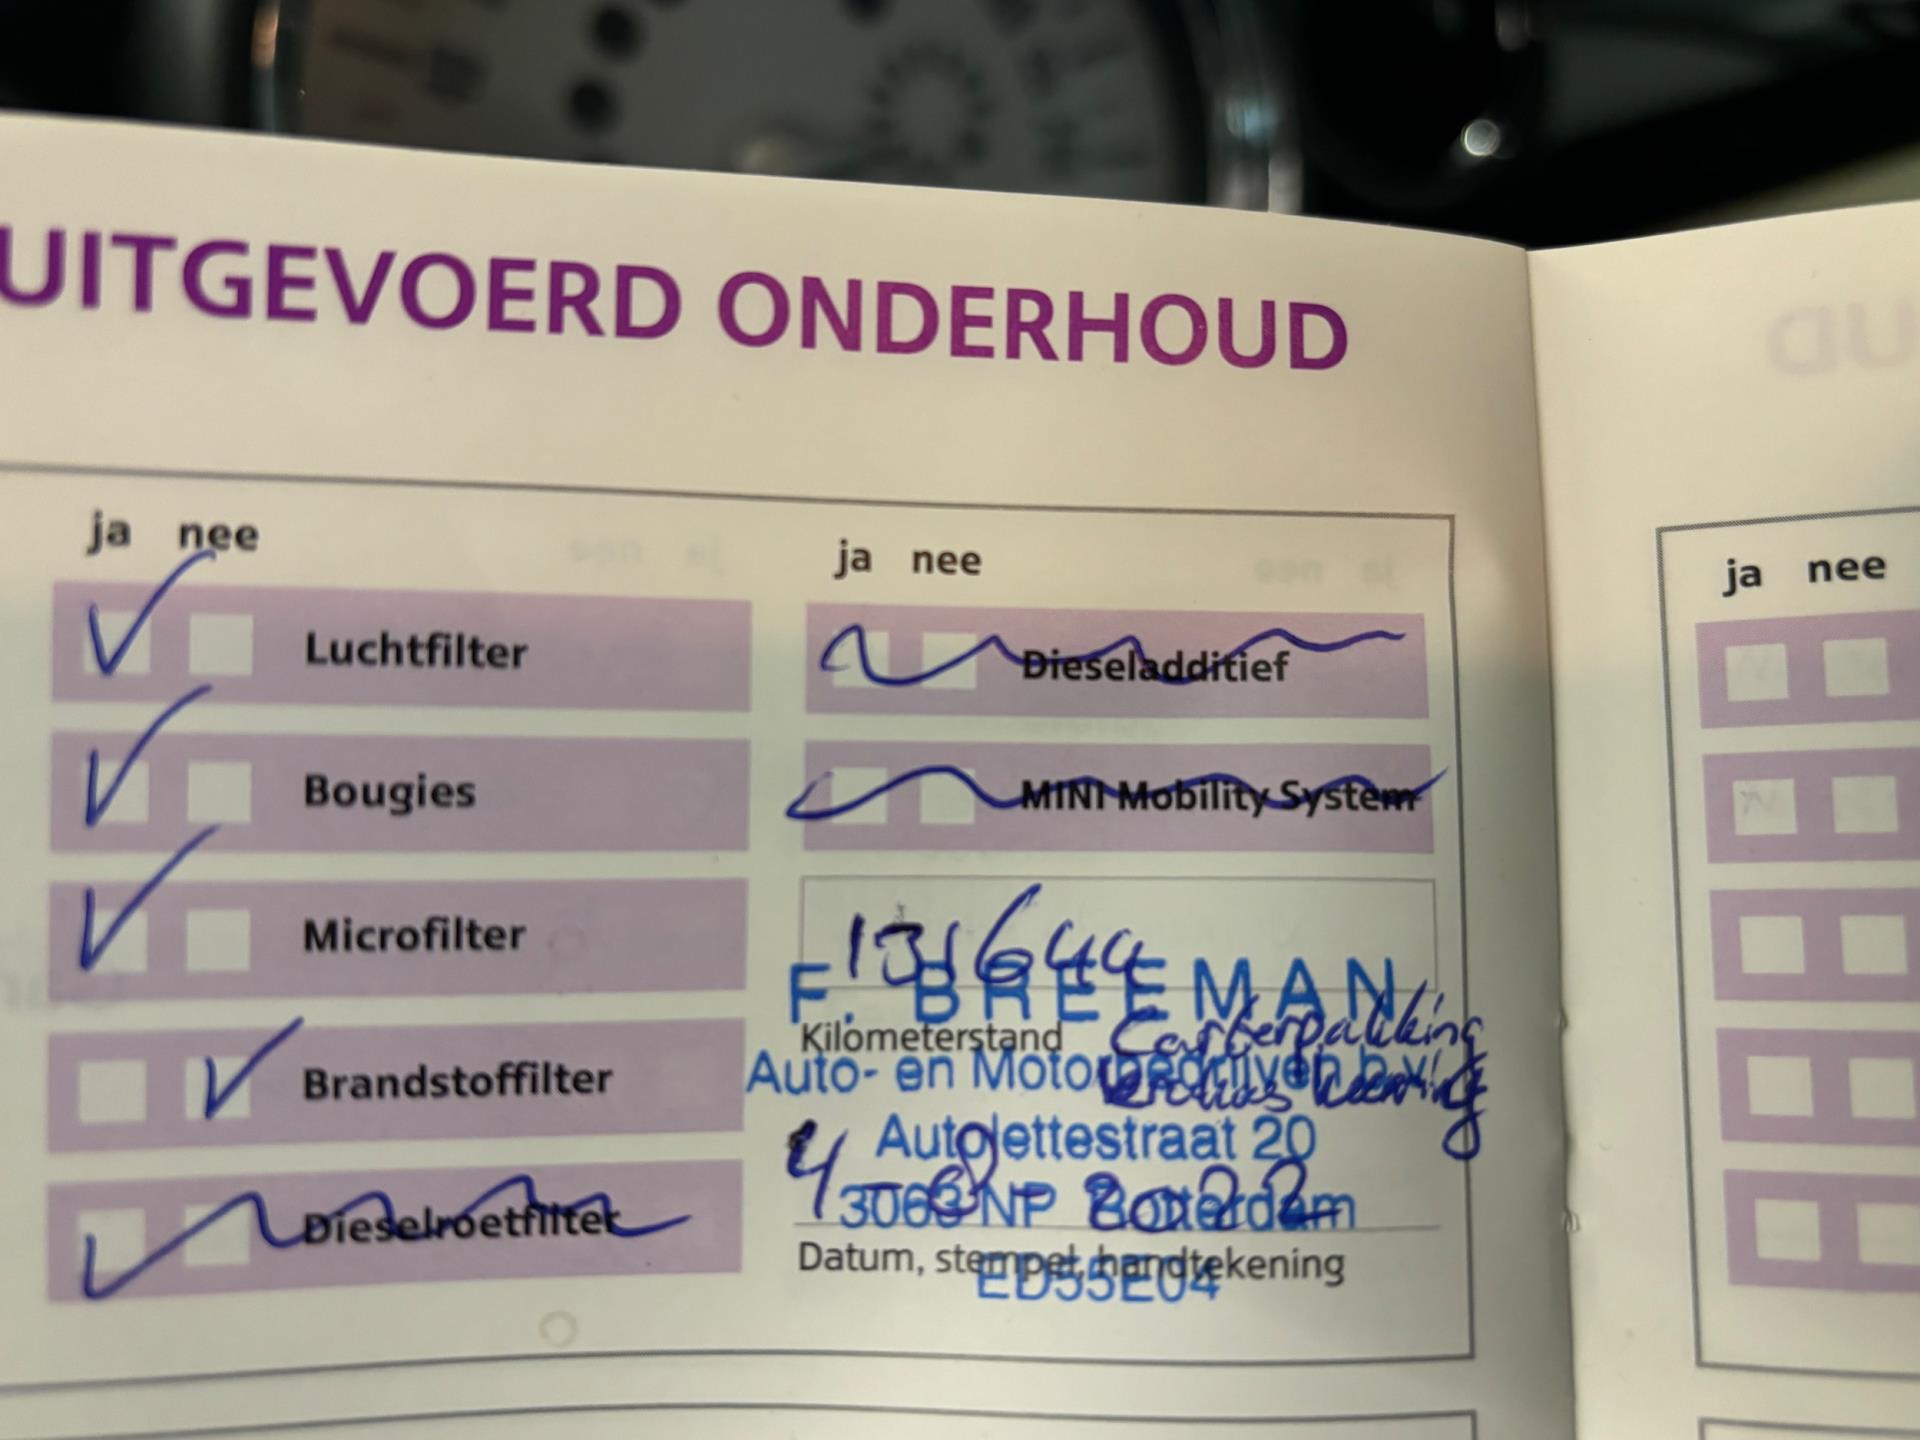 UITGEVOERD ONDERHOUD
ja nee
Luchtfilter
Bougies
Microfilter
Brandstoffilter
Dieselroetfilter
ja nee
Dieseladditief
MINI Mobility System
131644
F. BREEMAN
Kilometerstand
Carterpakking
Auto- en Motorbedrijven b.v.
Autolettestraat 20
4-8-2022
3063 NP Rotterdam
Datum, stempel, handtekening
ED55E04
ja nee